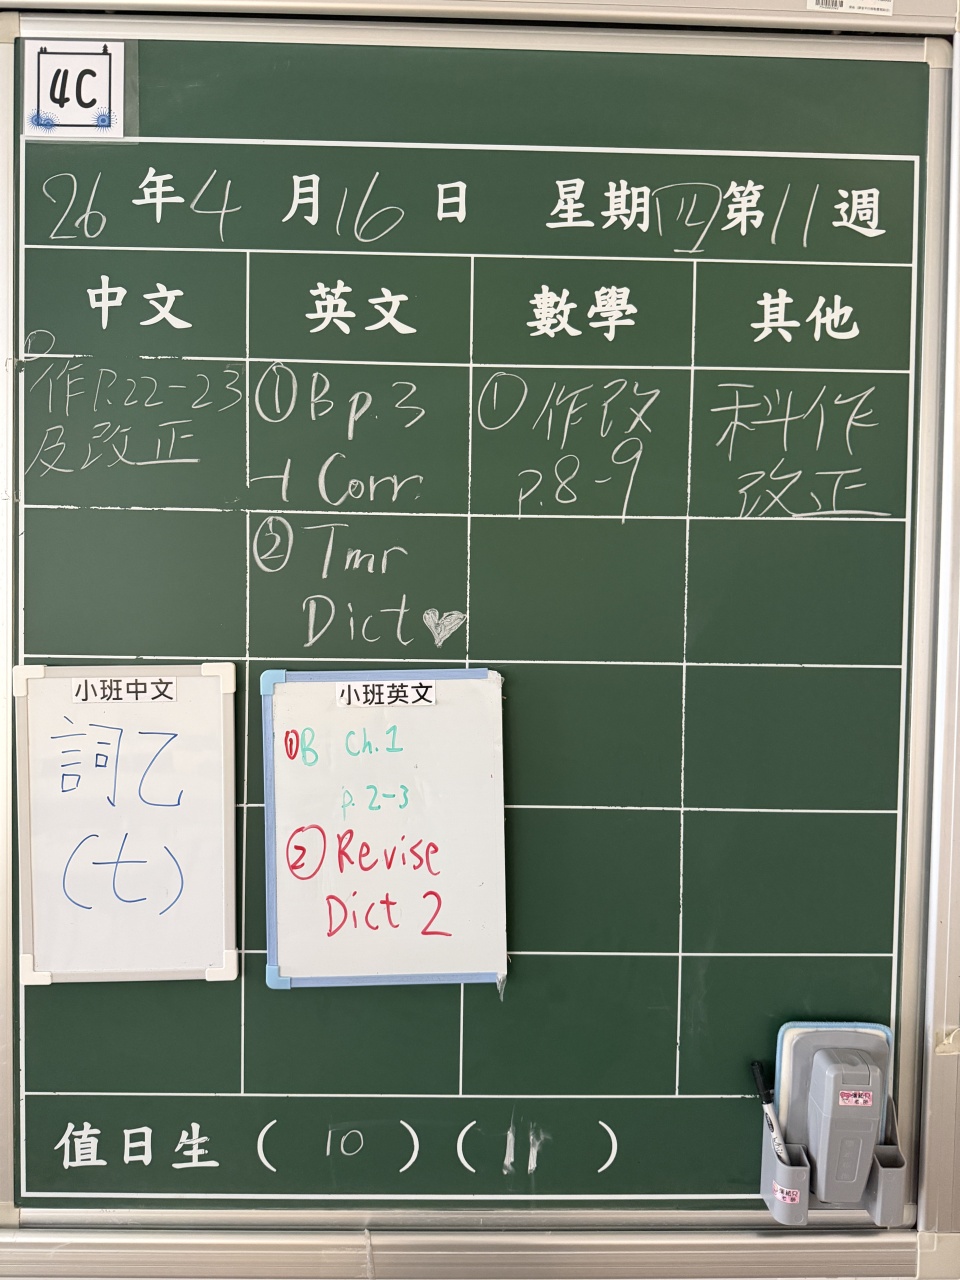 4C
26年4月16日 星期四第11週
中文 英文 數學 其他
①作P.22-23
及改正
①B p.3
+ Corr.
②Tmr
Dict♥
①作改
p.8-9
科作
改正
小班中文
詞乙
(七)
小班英文
①B Ch.1
p. 2-3
②Revise
Dict 2
值日生 ( 10 ) ( 11 )